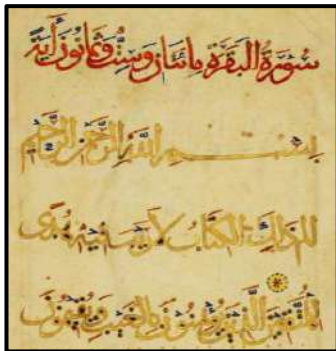 سورة البقرة مائتان وست وثمانون آية
بسم الله الرحمن الرحيم
الم ذلك الكتاب لا ريب فيه هدى
للمتقين الذين يؤمنون بالغيب ويقيمون